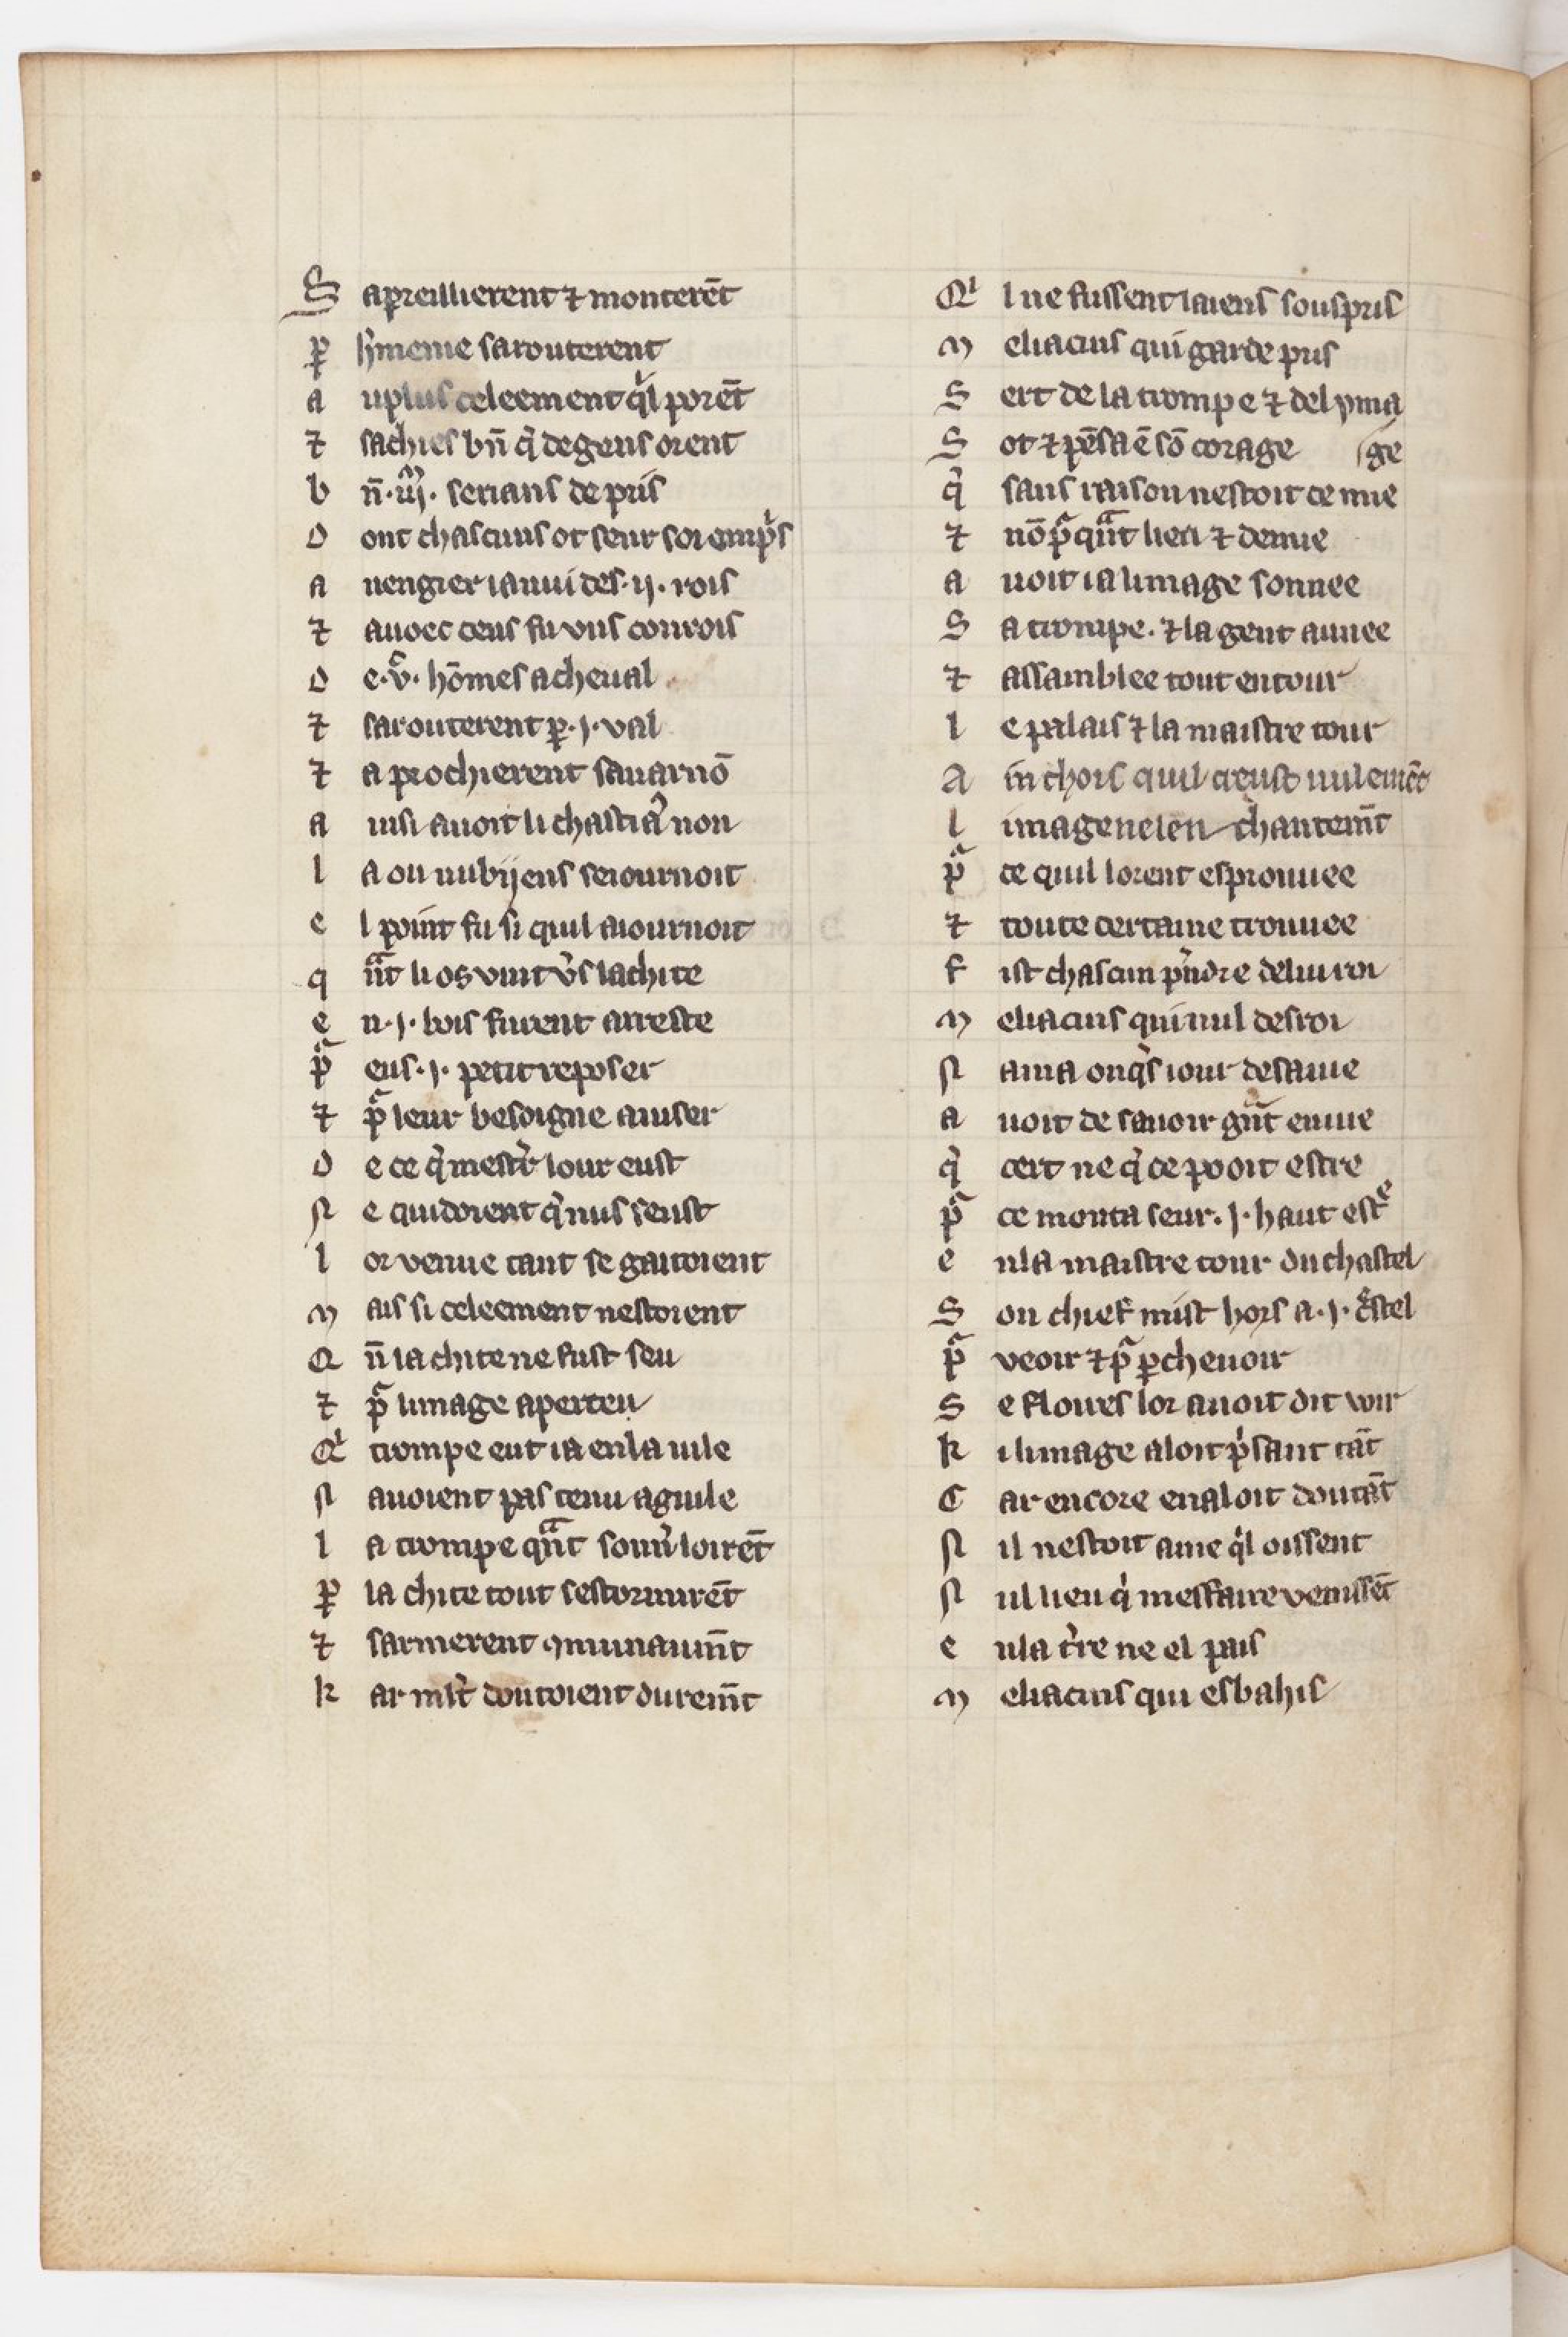 S apreillierent ⁊ monterēt
ꝑ hermenie sarouterent
a uplus celeement qͥl porēt
⁊ sachies bn̄ q̇ degens orent
b n̄ .iijͫ. serians de pris
D ont chascuns ot seur soi emprͥs
a uengier ianui des .ij. rois
⁊ auoec ceus fu vns conrois
D e .vͨ. hōmes acheual
⁊ sarouterent ꝑ .j. val
⁊ a prochierent sauarnō
a insi auoit li chastiaͮ non
l a ou nubijens seiournoit
e l point fu si quil aiournoit
q ᵃnt li os vint vs̓ lachite
e n .j. bois furent arreste
pͬ eus .j. petit reposer
⁊ pͬ leur besoigne auiser
D e ce q̇ mestr̓ lour eust
N e quidoient q̇ nus seust
l or venue tant se gaitoient
M ais si celeement nestoient
Q n̄ la chite ne fust seu
⁊ pͬ limage aperceu
Qͥ trompe eut ia enla uile
N auoient pas tenu aguile
l a trompe qᵃnt sonner̓ loirēt
ꝑ la chite tout sestormirēt
⁊ sarmerent ꝯmunaumn̄t
k ar mlt̓ doutoient duremn̄t
Qͥ l ne fussent laiens souspris
M eliacins qui garde pris
S ert de la trompe ⁊ del yma
S ot ⁊ pēsa ē sō corage ge
q̇ sans raison nestoit ce mie
⁊ nō pͬ quᵃnt lieu ⁊ demie
a uoit ia limage sonnee
S a trompe. ⁊ la gent armee
⁊ assamblee tout entour
l e palais ⁊ la maistre tour
A in chois quil creust nulemēt
l image nelen chantemn̄t
pͬ ce quil lorent esprouuee
⁊ toute certaine trouuee
F ist chascun pn̓dre deliuroi
M eliacins qui nul desroi
N ama onqͥs iour desauie
a uoit de sauoir gᵃnt enuie
q̇ cert ne q̇ ce pooit estre
pͬ ce monta seur .j. haut estrͤ
e nla maistre tour du chastel
S on chief mist hors a .j. cr̓stel
pͬ veoir ⁊ pͬ ꝑcheuoir
S e floures lor auoit dit voir
k i limage aloit pͥsant tāt
C ar encore en aloit doutāt
N il nestoit ame qͥl oissent
N ul lieu q̇ mesfaire venissēt
e nla tr̓re ne el pais
M eliacins qui esbahis